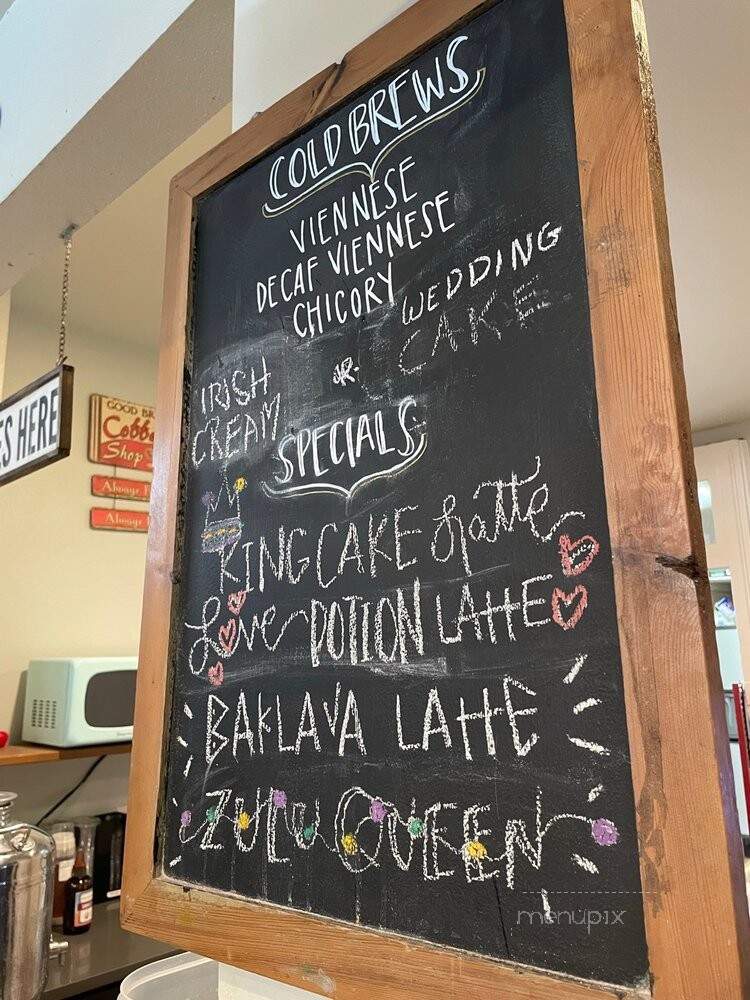 COLD BREWS
VIENNESE
DECAF VIENNESE
CHICORY
WEDDING
CAKE
IRISH
CREAM
OR
SPECIALS
KING CAKE Latte
Love POTION LATTE
BAKLAVA LATTE
ZULU QUEEN
S HERE
GOOD BR
Coffe
Shop
Always
Always
menupix